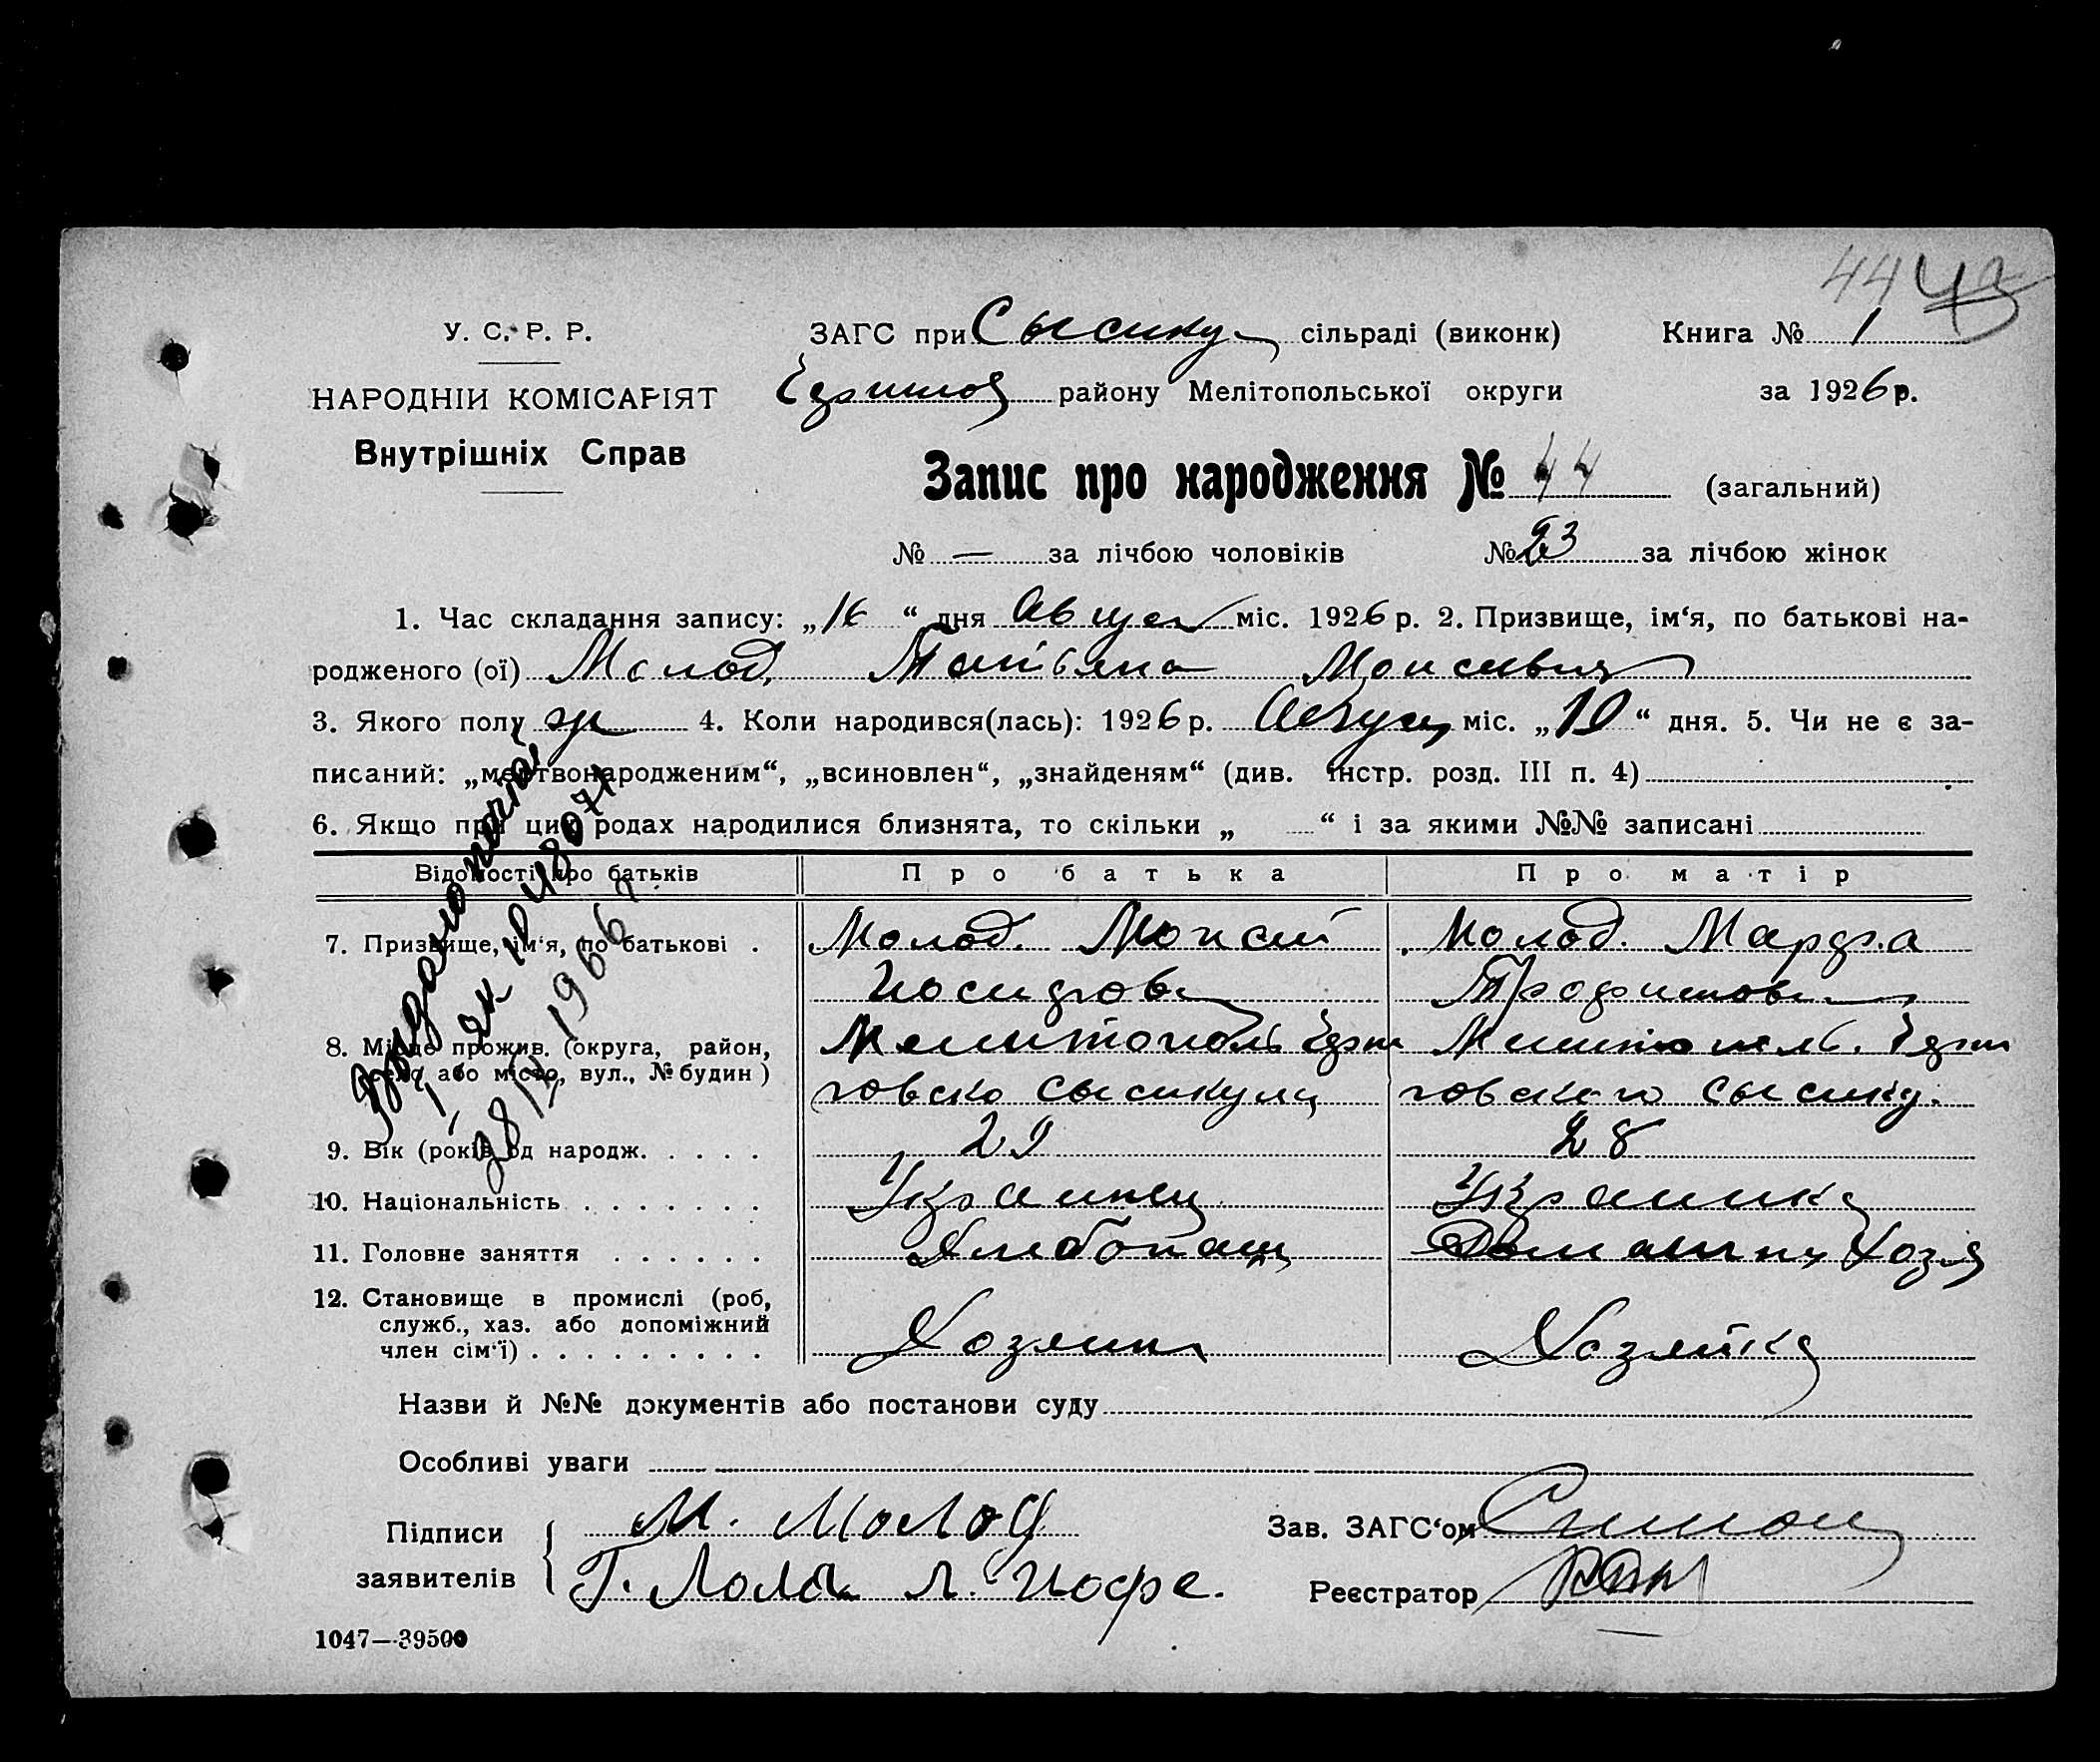 44
У. С. Р. Р.
ЗАГС при Сысику сільраді (виконк) Книга № 1
НАРОДНІЙ КОМІСАРІЯТ
району Мелітопольської округи за 1926 р.
Внутрішніх Справ
Запис про народження № 44 (загальний)
№ — за лічбою чоловіків № 23 за лічбою жінок
1. Час складання запису: „16“ дня Август міс. 1926 р. 2. Призвище, ім‘я, по батькові на-
родженого (ої) Молод Татьяна Моисеевна
3. Якого полу ж 4. Коли народився(лась): 1926 р. Август міс. „10“ дня. 5. Чи не є за-
писаний: „мертвонародженим“, „всиновлен“, „знайденям“ (див. інстр. розд. III п. 4)
6. Якщо при цих родах народилися близнята, то скільки „ “ і за якими №№ записані
Відомості про батьків Про батька Про матір
7. Призвище, ім‘я, по батькові . Молод. Моисей Молод. Марфа
Иосифов Трофимов
8. Місце прожив. (округа, район, Мелитополь Мелитополь.
село або місто, вул., № будин) сысикул сысику.
9. Вік (років од народж. . . . . 29 28
10. Національність . . . . . . . Украинец Украинка
11. Головне заняття . . . . . . Хлебопашц Домашня Хозя
12. Становище в промислі (роб,
служб., хаз. або допоміжний
член сім‘ї) . . . . . . . . . Хозяин Хозяйка
Назви й №№ документів або постанови суду
Особливі уваги
Підписи М. Молод Зав. ЗАГС‘ом
заявителів Г. Лола Л. Иофе. Реєстратор
1047—39500
28/IV 1966